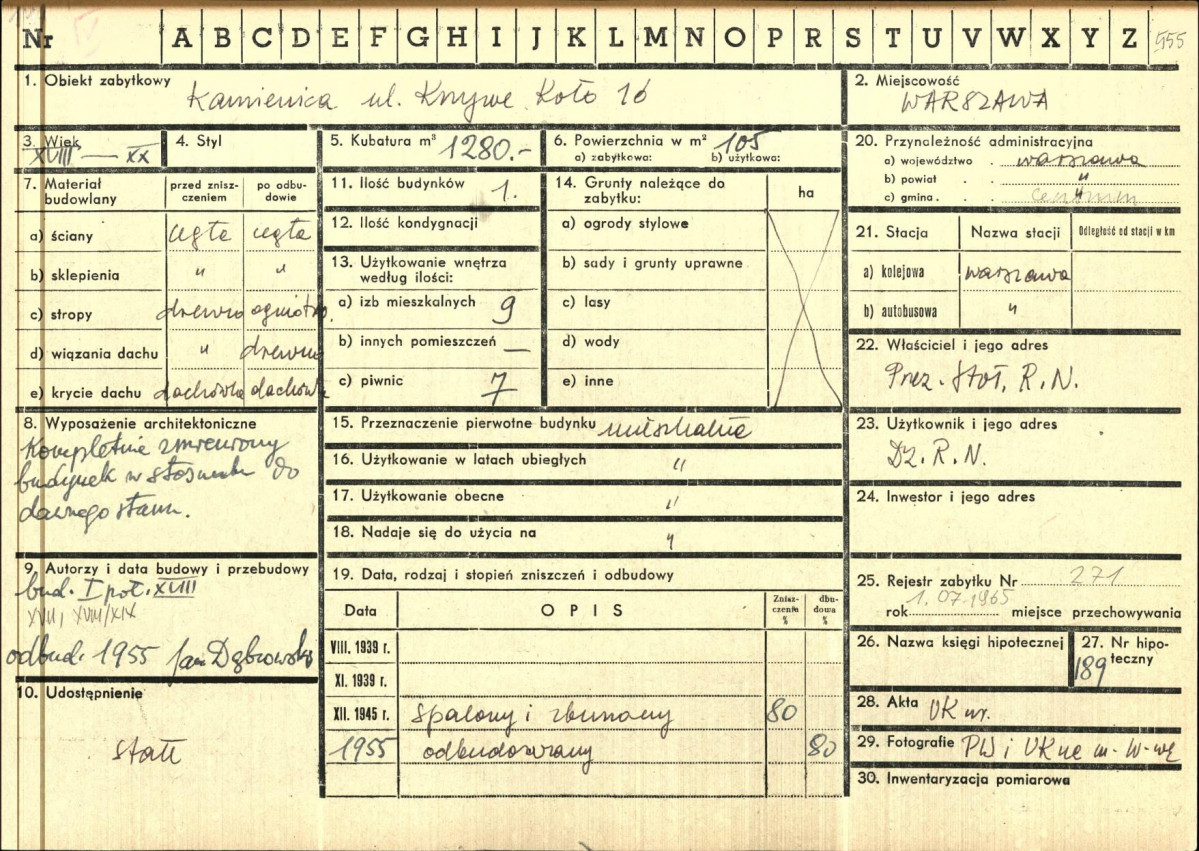 Nr A B C D E F G H I J K L M N O P R S T U V W X Y Z 555
1. Obiekt zabytkowy
Kamienica ul. Krzywe Koło 16
2. Miejscowość
WARSZAWA
3. Wiek
XVIII — XX
4. Styl
5. Kubatura m³ 1280.-
6. Powierzchnia w m² 105
a) zabytkowa: b) użytkowa:
7. Materiał budowlany
przed zniszczeniem
po odbudowie
a) ściany cegła cegła
b) sklepienia " "
c) stropy drewno ogniotrw.
d) wiązania dachu " drewno
e) krycie dachu dachówka dachówka
8. Wyposażenie architektoniczne
Kompletnie zmieniony
budynek w stosunku do
dawnego stanu.
9. Autorzy i data budowy i przebudowy
bud. I poł. XVIII
XVII, XVIII/XIX
odbud. 1955 Jan Dąbrowski
10. Udostępnienie
stałe
11. Ilość budynków 1.
12. Ilość kondygnacji
13. Użytkowanie wnętrza
według ilości:
a) izb mieszkalnych 9
b) innych pomieszczeń —
c) piwnic 7
14. Grunty należące do
zabytku:
ha
a) ogrody stylowe
b) sady i grunty uprawne
c) lasy
d) wody
e) inne
15. Przeznaczenie pierwotne budynku mieszkalne
16. Użytkowanie w latach ubiegłych "
17. Użytkowanie obecne "
18. Nadaje się do użycia na "
19. Data, rodzaj i stopień zniszczeń i odbudowy
Data OPIS Zniszczenie % dbudowa %
VIII. 1939 r.
XI. 1939 r.
XII. 1945 r. spalony i zburzony 80
1955 odbudowany 80
20. Przynależność administracyjna
a) województwo . warszawa
b) powiat . . "
c) gmina . . "
21. Stacja Nazwa stacji Odległość od stacji w km
a) kolejowa warszawa
b) autobusowa "
22. Właściciel i jego adres
Prez. Stoł. R. N.
23. Użytkownik i jego adres
Dz. R. N.
24. Inwestor i jego adres
25. Rejestr zabytku Nr 271
1. 07 1965
rok miejsce przechowywania
26. Nazwa księgi hipotecznej
27. Nr hipoteczny
189
28. Akta UK
29. Fotografie PW i UK
30. Inwentaryzacja pomiarowa